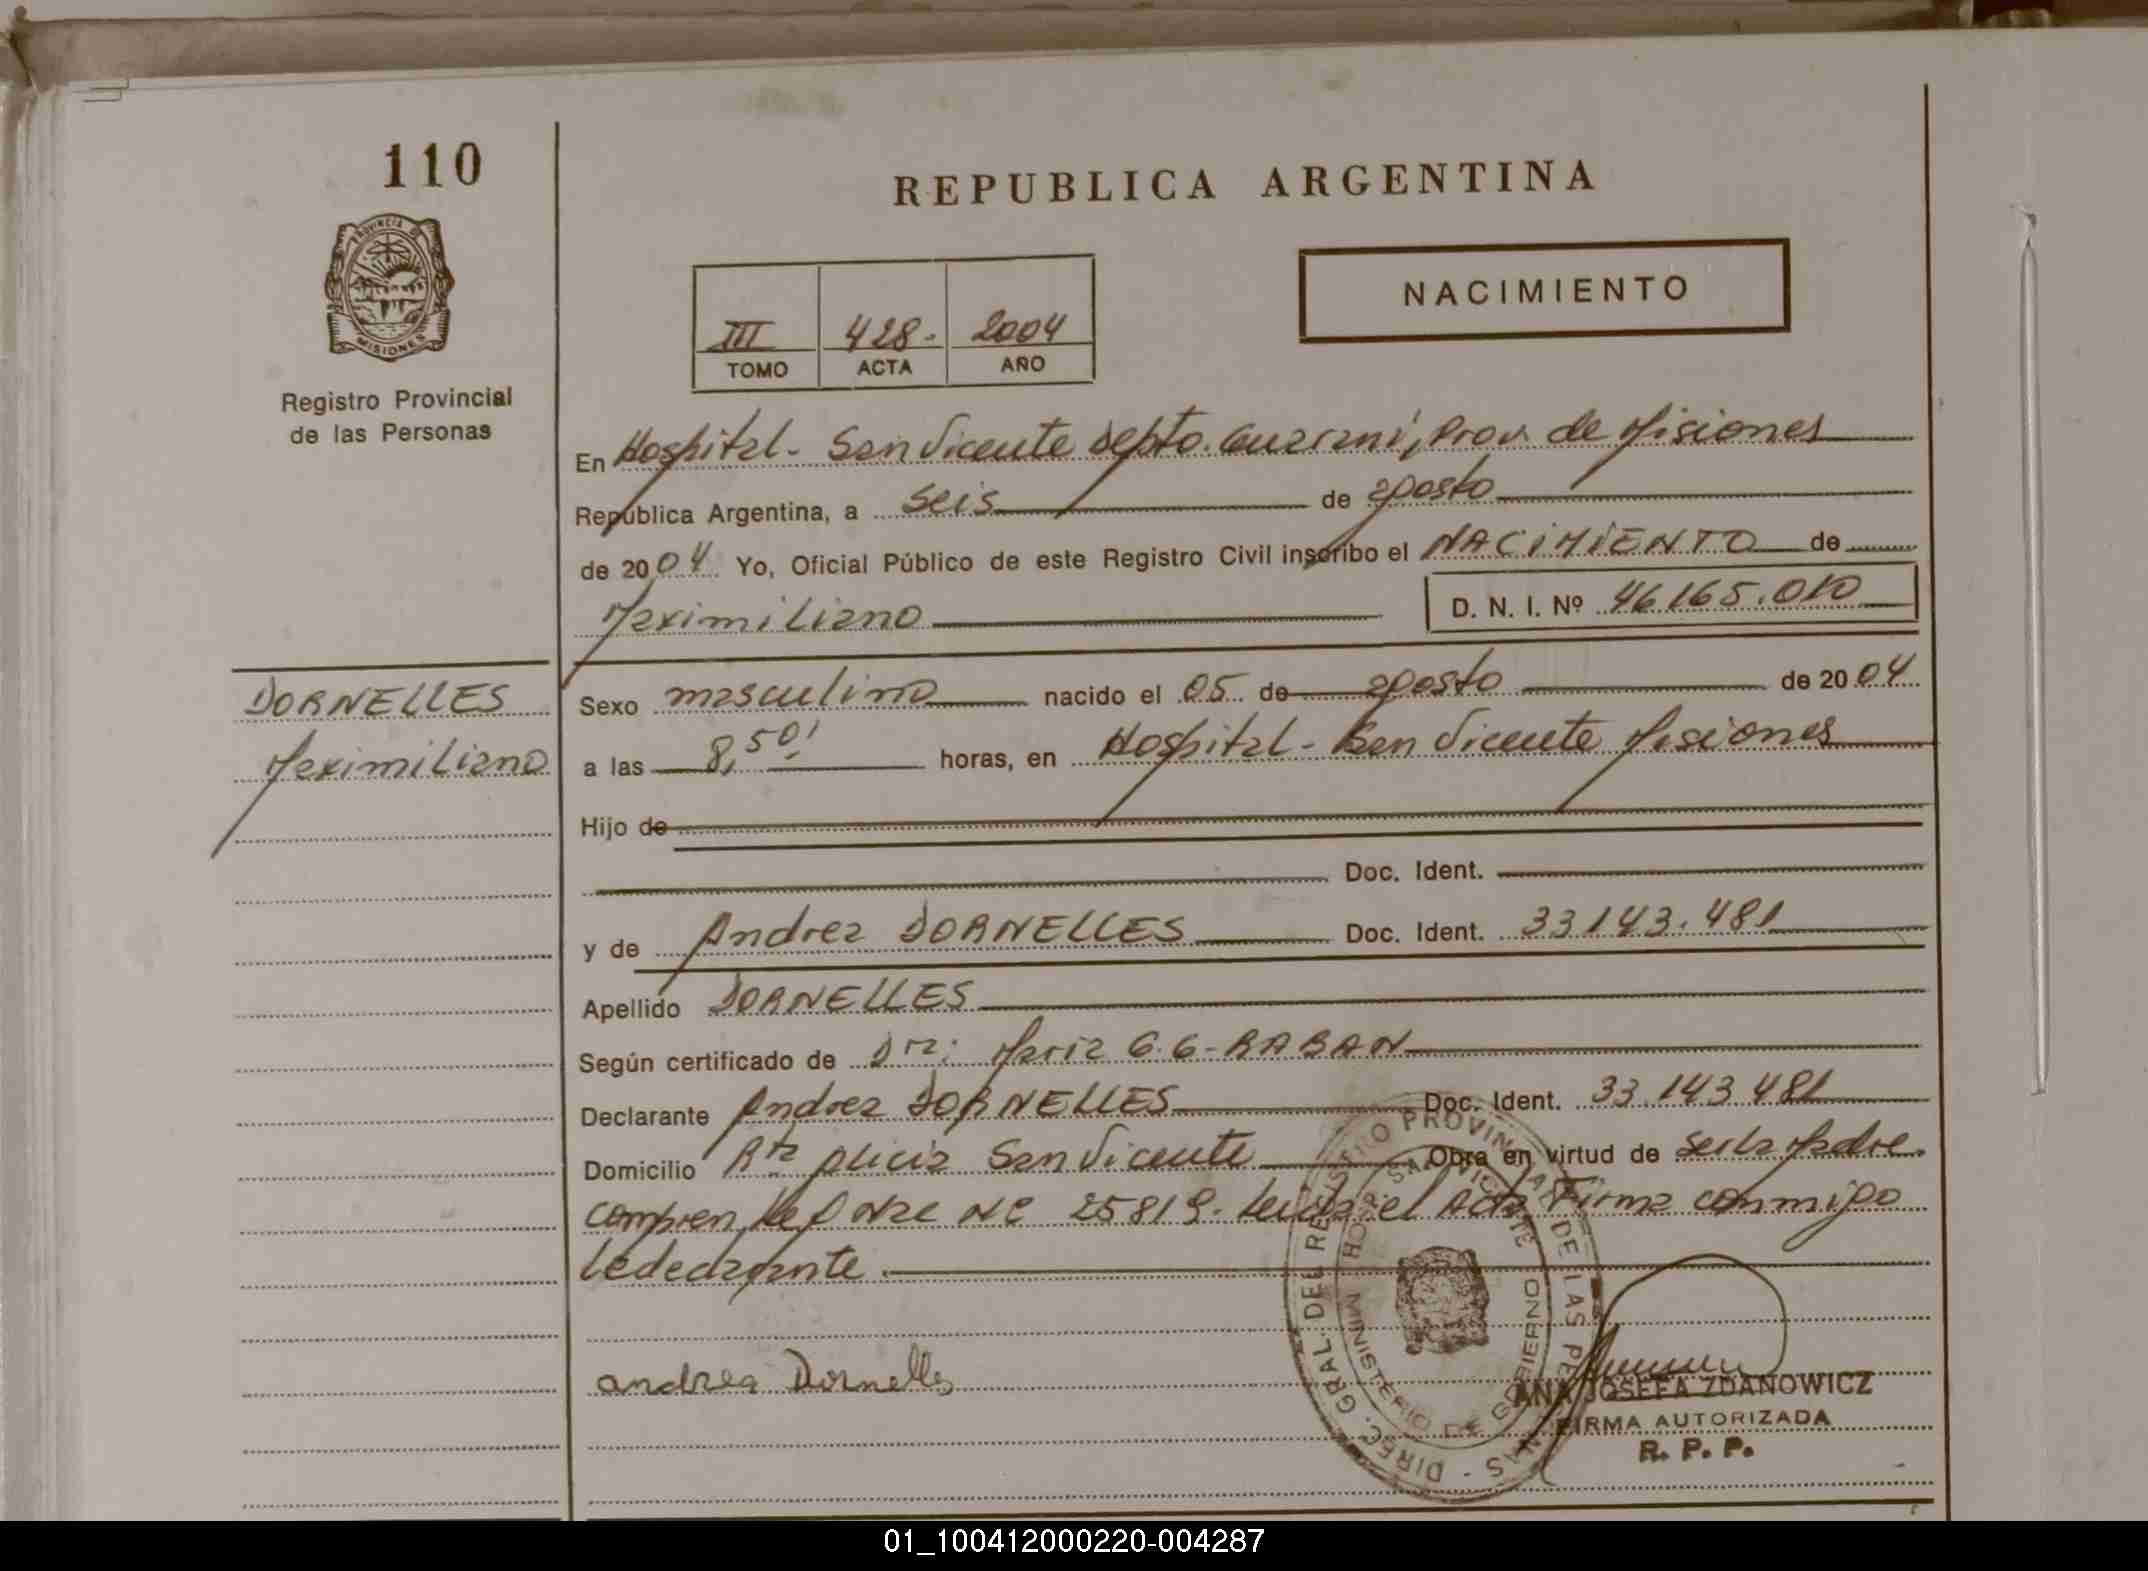 110
REPUBLICA ARGENTINA
PROVINCIA DE
MISIONES
Registro Provincial
de las Personas
NACIMIENTO
III 428- 2004
TOMO ACTA AÑO
En Hospital - San Vicente Depto. Guaraní, Prov. de Misiones
República Argentina, a seis de agosto
de 2004 Yo, Oficial Público de este Registro Civil inscribo el NACIMIENTO de
Maximiliano D. N. I. Nº 46.165.010
DORNELLES
Maximiliano
Sexo masculino nacido el 05 de agosto de 2004
a las 8,50' horas, en Hospital - San Vicente Misiones
Hijo de
Doc. Ident.
y de Andrea DORNELLES Doc. Ident. 33143.481
Apellido DORNELLES
Según certificado de Dra: María G.G. RABAN
Declarante Andrea DORNELLES Doc. Ident. 33.143.481
Domicilio Rta Alicia San Vicente Obra en virtud de ser la Madre.
Nac Nº 25819. Leída el Acta Firma conmigo
la declarante.
andrea Dornelles
DIREC. GRAL. DEL REGISTRO PROVINCIAL DE LAS PERSONAS
MINISTERIO DE GOBIERNO
HOSP. SAN VICENTE
ANA JOSEFA ZDANOWICZ
FIRMA AUTORIZADA
R. P. P.
01_100412000220-004287